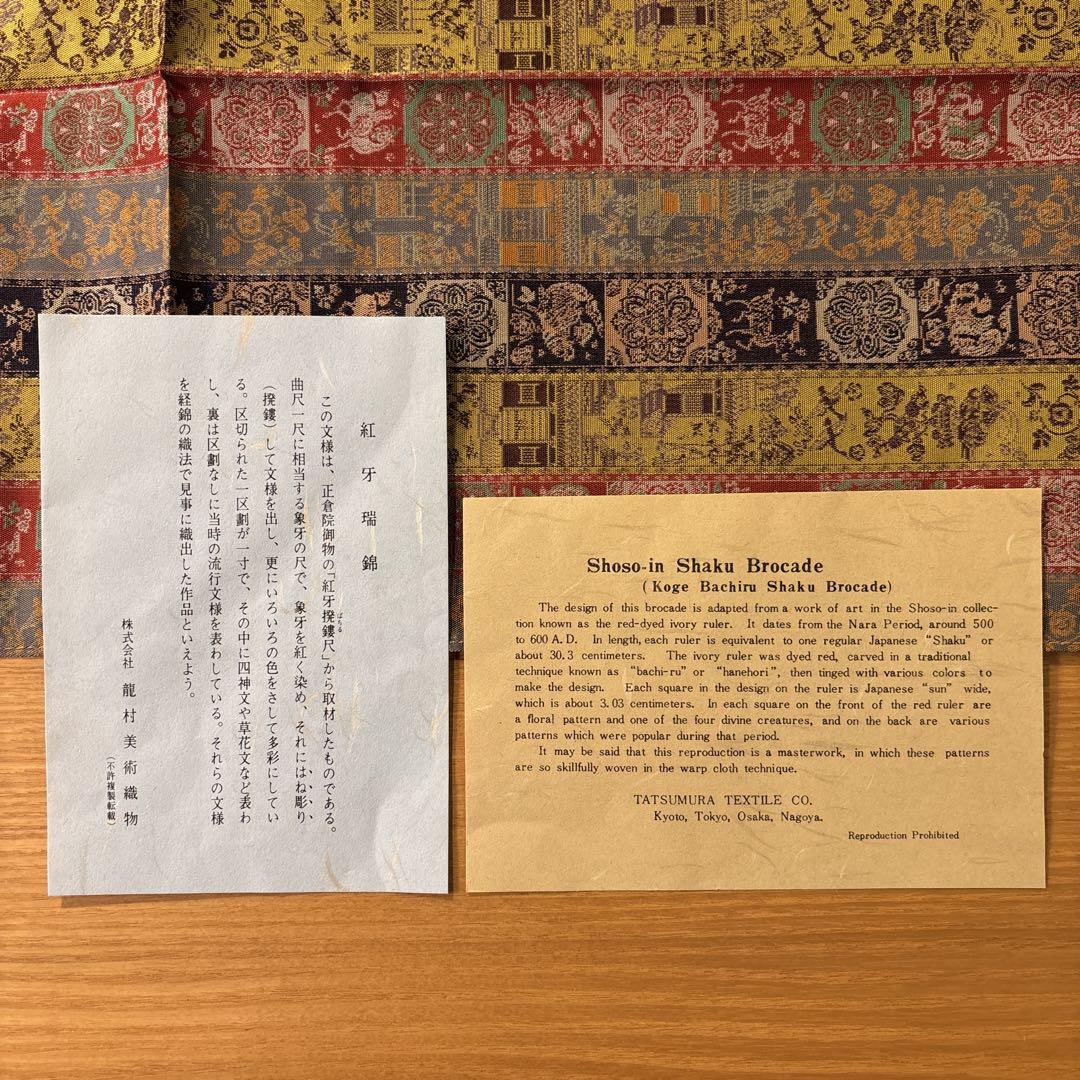 紅牙瑞錦
この文様は、正倉院御物の「紅牙撥鏤尺」から取材したものである。
ばちる
曲尺一尺に相当する象牙の尺で、象牙を紅く染め、それにはね彫り
(撥鏤)して文様を出し、更にいろいろの色をさして多彩にしてい
る。区切られた一区劃が一寸で、その中に四神文や草花文など表わ
し、裏は区劃なしに当時の流行文様を表わしている。それらの文様
を経錦の織法で見事に織出した作品といえよう。
株式会社 龍村美術織物
(不許複製転載)
Shoso-in Shaku Brocade
(Koge Bachiru Shaku Brocade)
The design of this brocade is adapted from a work of art in the Shoso-in collec-
tion known as the red-dyed ivory ruler. It dates from the Nara Period, around 500
to 600 A.D. In length, each ruler is equivalent to one regular Japanese "Shaku" or
about 30.3 centimeters. The ivory ruler was dyed red, carved in a traditional
technique known as "bachi-ru" or "hanehori", then tinged with various colors to
make the design. Each square in the design on the ruler is Japanese "sun" wide,
which is about 3.03 centimeters. In each square on the front of the red ruler are
a floral pattern and one of the four divine creatures, and on the back are various
patterns which were popular during that period.
It may be said that this reproduction is a masterwork, in which these patterns
are so skillfully woven in the warp cloth technique.
TATSUMURA TEXTILE CO.
Kyoto, Tokyo, Osaka, Nagoya.
Reproduction Prohibited